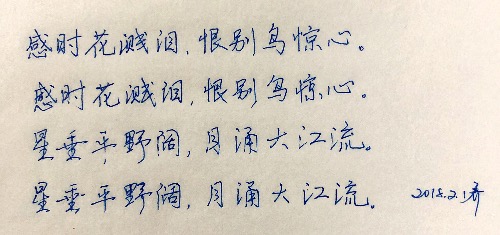 感时花溅泪,恨别鸟惊心。
感时花溅泪,恨别鸟惊心。
星垂平野阔,月涌大江流。
星垂平野阔,月涌大江流。 2018.2.1